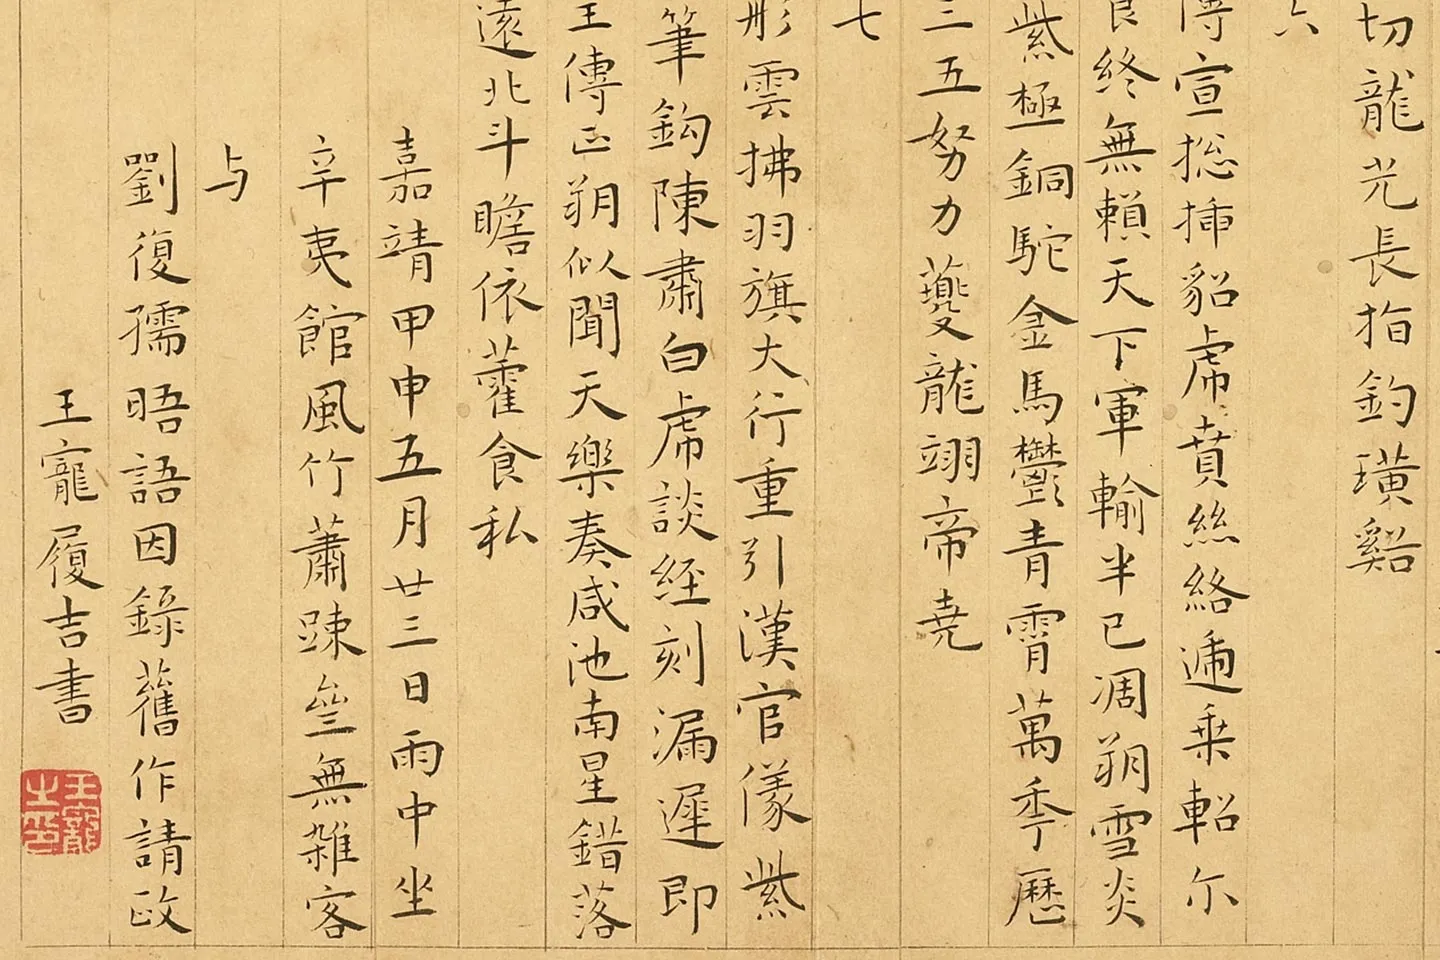 切龍光長指釣璜谿
六
傳宣捴揷貂虎賁絲絡逓乗軺尓
終無賴天下軍輸半已凋朔雪炎
紫極銅駝金馬鬱青霄萬秊歷
三五努力夔龍翊帝堯
七
彤雲拂羽旗大行重引漢官儀紫
筆鈎陳肅白虎談経刻漏遲即
王傳正朔似聞天樂奏咸池南星錯落
遠北斗瞻依藿食私
嘉靖甲申五月廿三日雨中坐
辛夷館風竹蕭踈並無雜客
与
劉復孺晤語因錄舊作請政
王寵履吉書
王寵之印